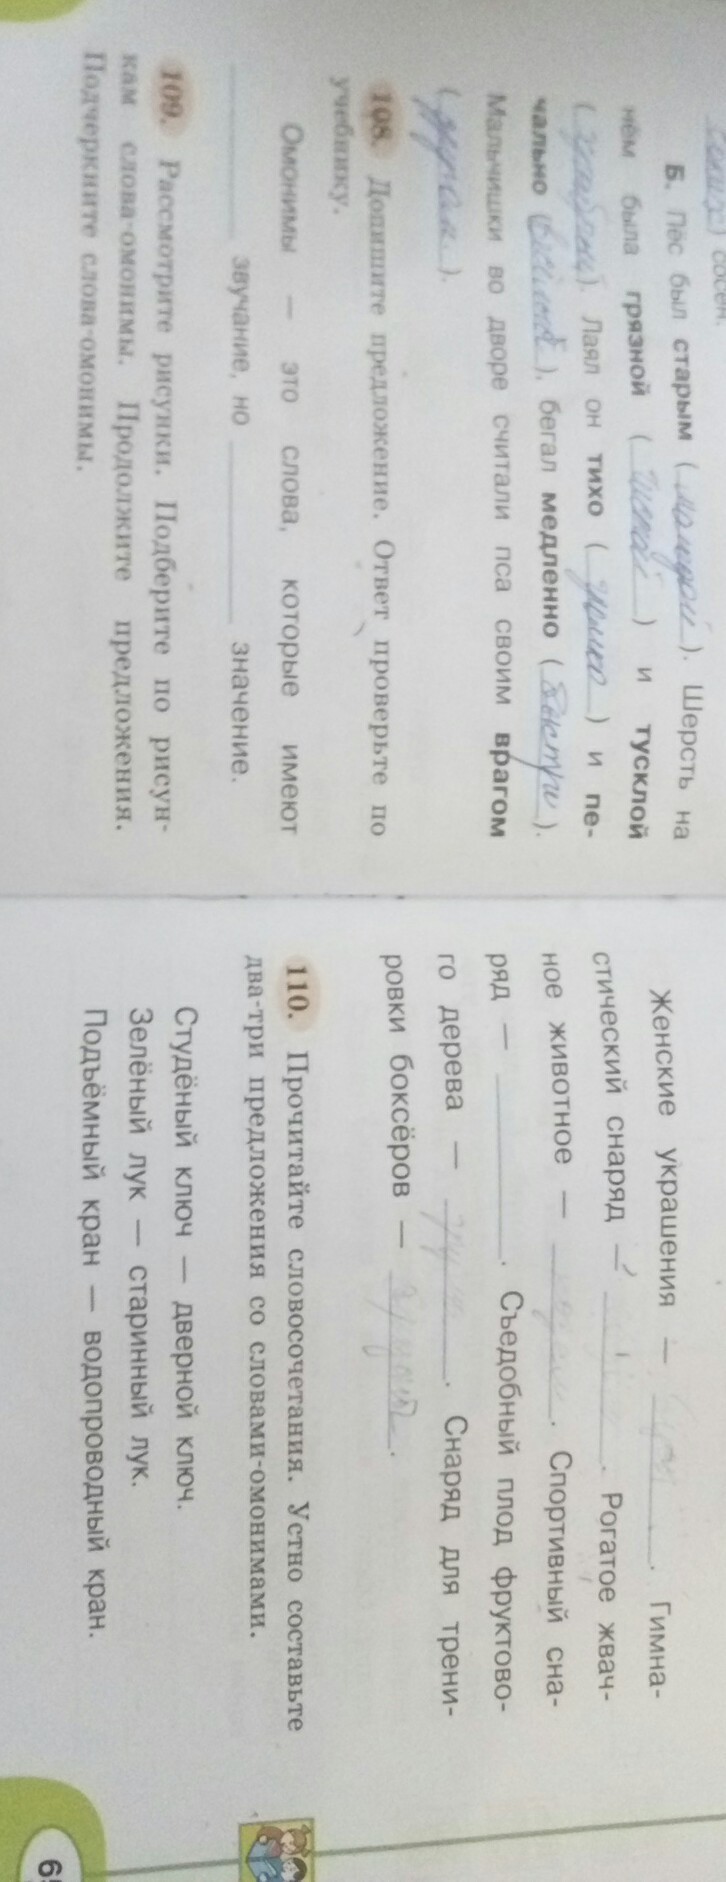 Б. Пёс был старым (молодой). Шерсть на
нём была грязной (чистой) и тусклой
( ). Лаял он тихо ( ) и пе-
чально ( ), бегал медленно (быстро).
Мальчишки во дворе считали пса своим врагом
(другом).
108. Допишите предложение. Ответ проверьте по
учебнику.
Омонимы — это слова, которые имеют
звучание, но значение.
109. Рассмотрите рисунки. Подберите по рисун-
кам слова-омонимы. Продолжите предложения.
Подчеркните слова-омонимы.
Женские украшения — . Гимна-
стический снаряд — . Рогатое жвач-
ное животное — . Спортивный сна-
ряд — . Съедобный плод фруктово-
го дерева — груша. Снаряд для трени-
ровки боксёров — .
110. Прочитайте словосочетания. Устно составьте
два-три предложения со словами-омонимами.
Студёный ключ — дверной ключ.
Зелёный лук — старинный лук.
Подъёмный кран — водопроводный кран.